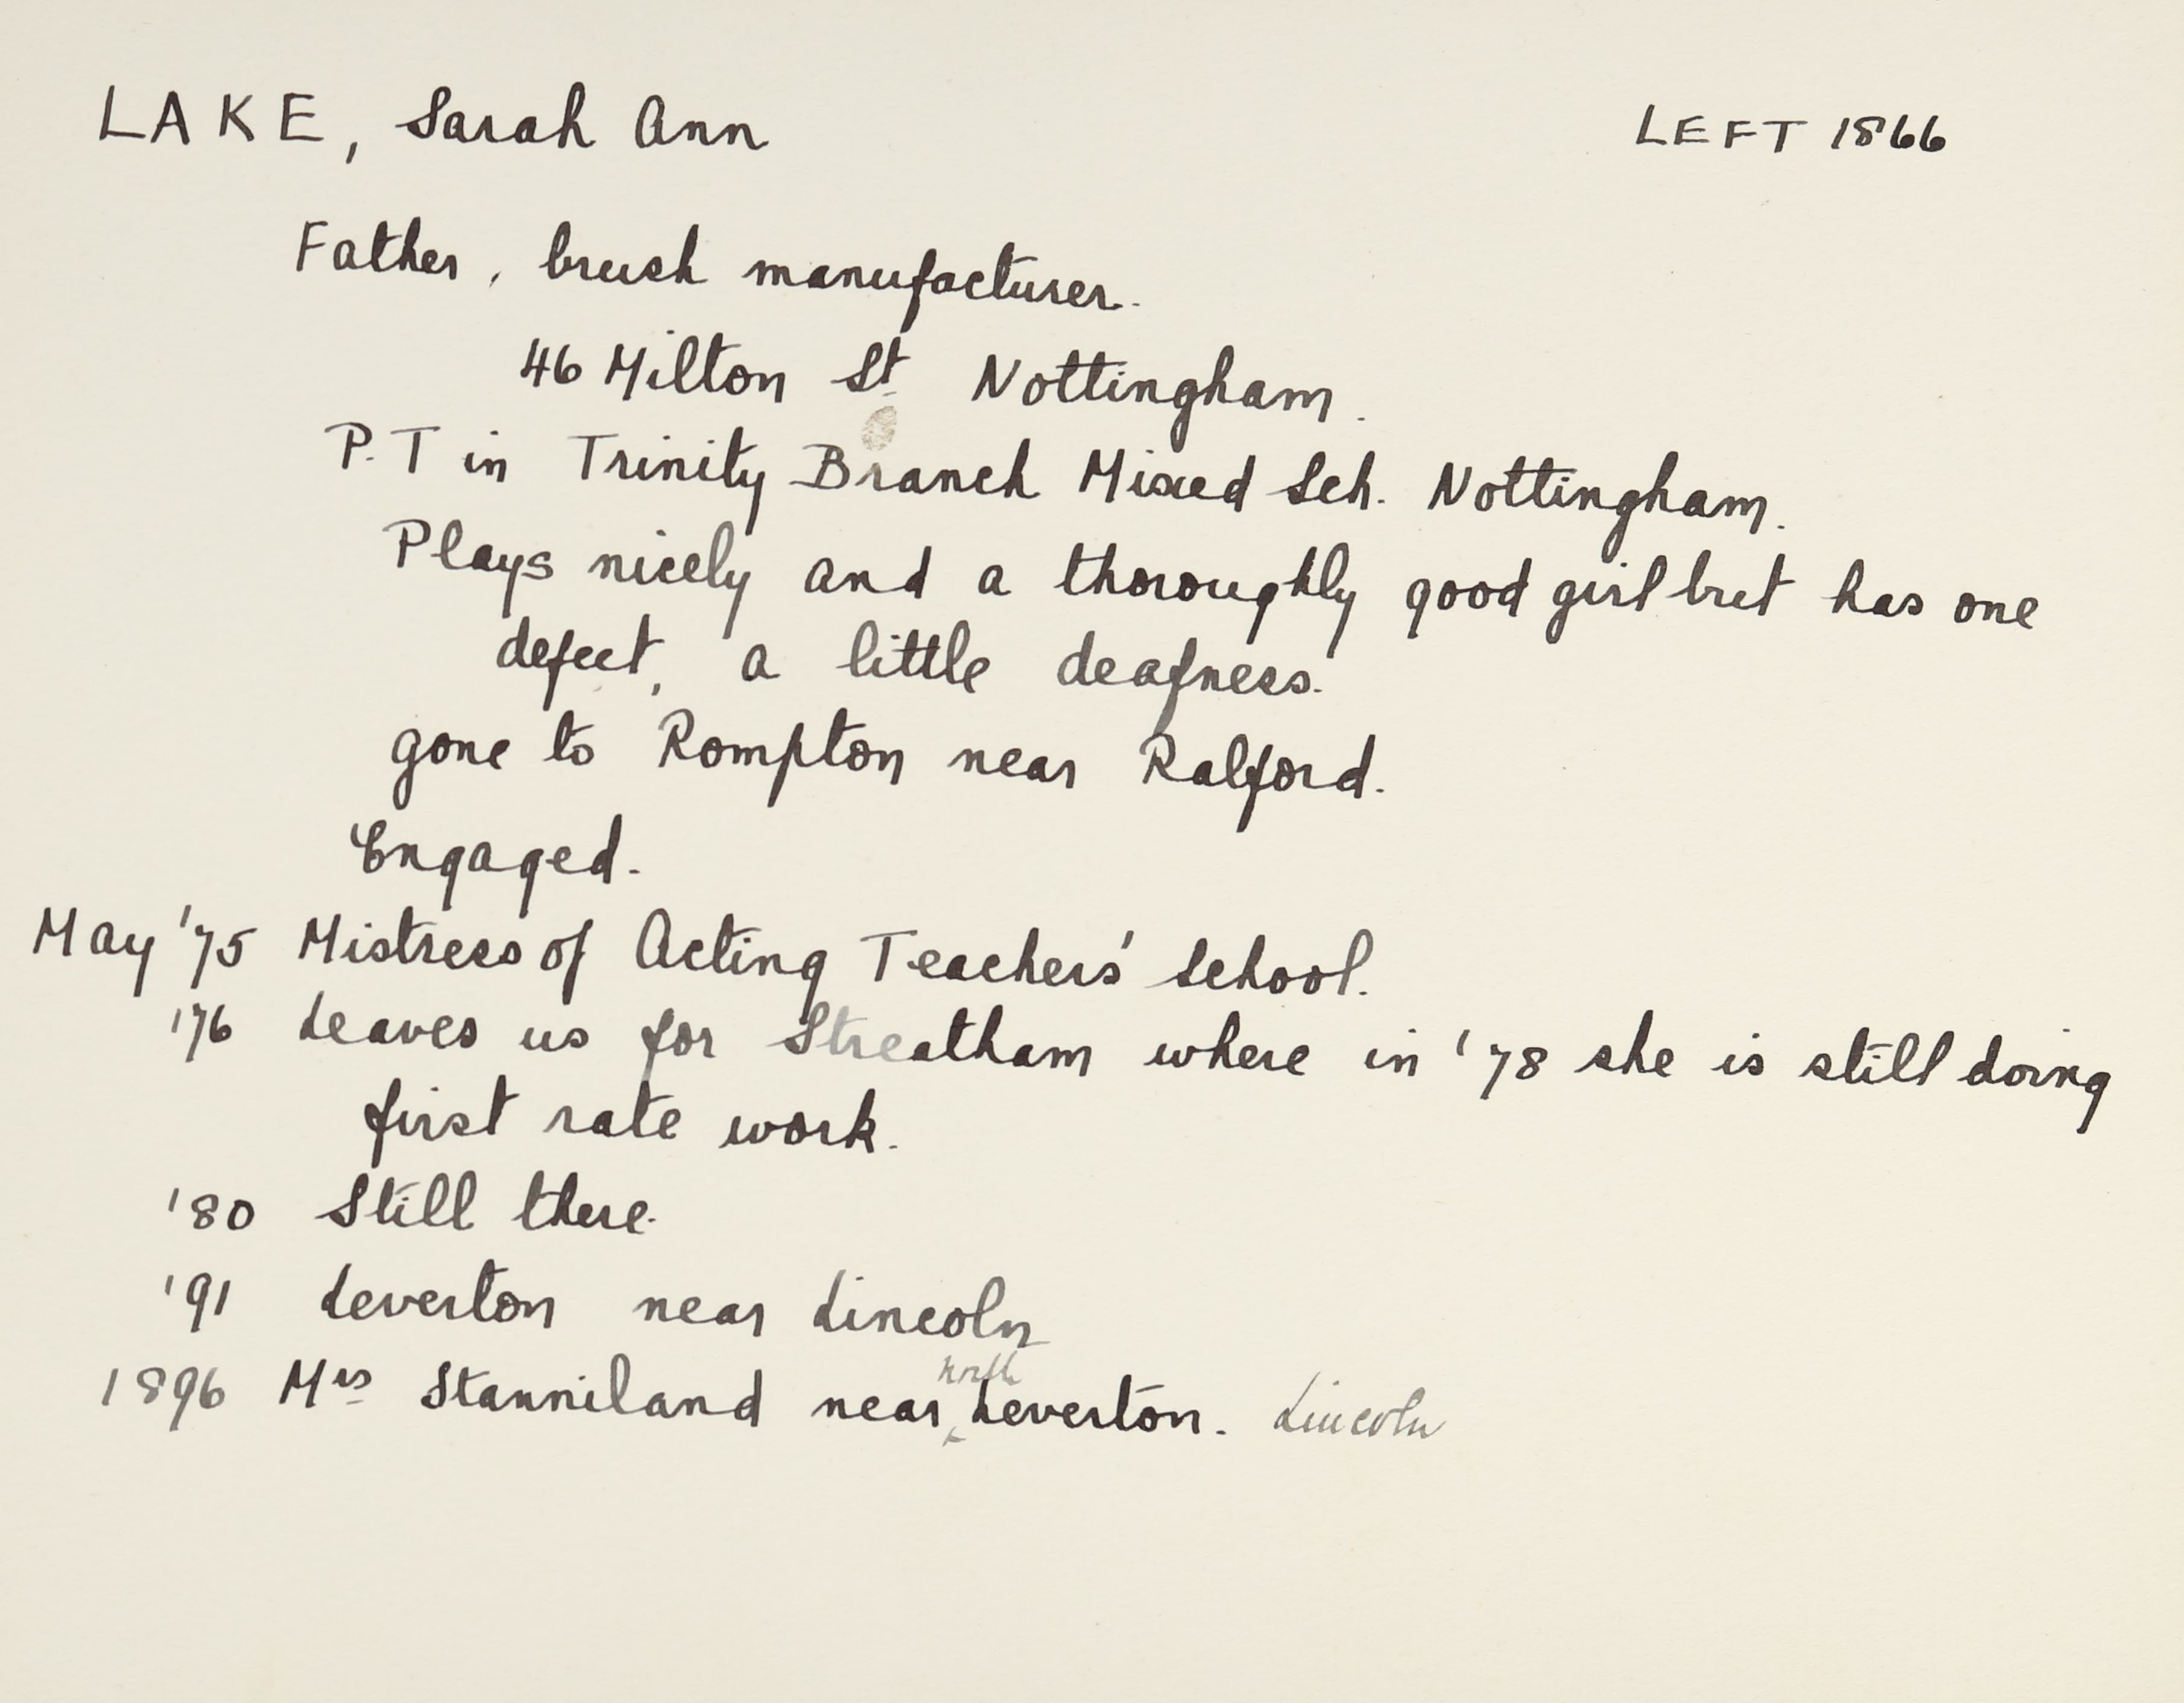 LAKE, Sarah Ann LEFT 1866
Father, brush manufacturer.
46 Milton St Nottingham.
P.T in Trinity Branch Mixed Sch. Nottingham.
Plays nicely and a thoroughly good girl but has one
defect, a little deafness.
gone to Rompton near Ralford.
Engaged.
May '75 Mistress of Acting Teachers' School.
'76 Leaves us for Streatham where in '78 she is still doing
first rate work.
'80 Still there.
'91 Leverton near Lincoln
1896 Mrs Stanniland near north Leverton. Lincoln